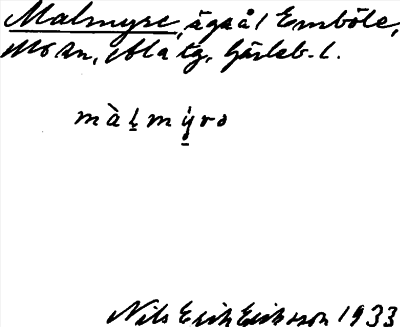 Malmyre, äga å l Emböle,
Mo sn, Ala tg, Gävleb. l.
màl̠mý̠ro
Nils Erik Eriksson 1933